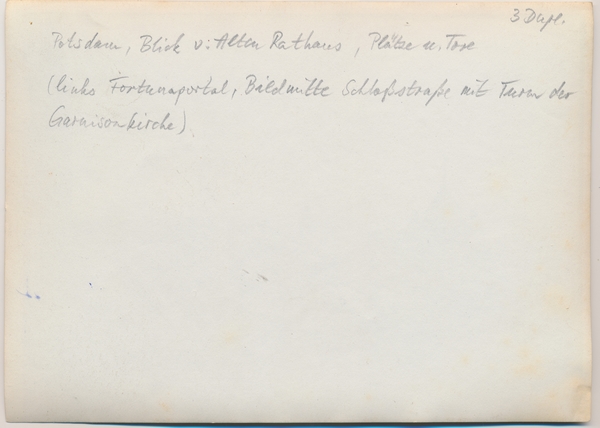 3 Dupl.
Potsdam, Blick v. Alten Rathaus, Plätze u. Tore
(links Fortunaportal, Bildmitte Schloßstraße mit Turm der
Garnisonkirche)